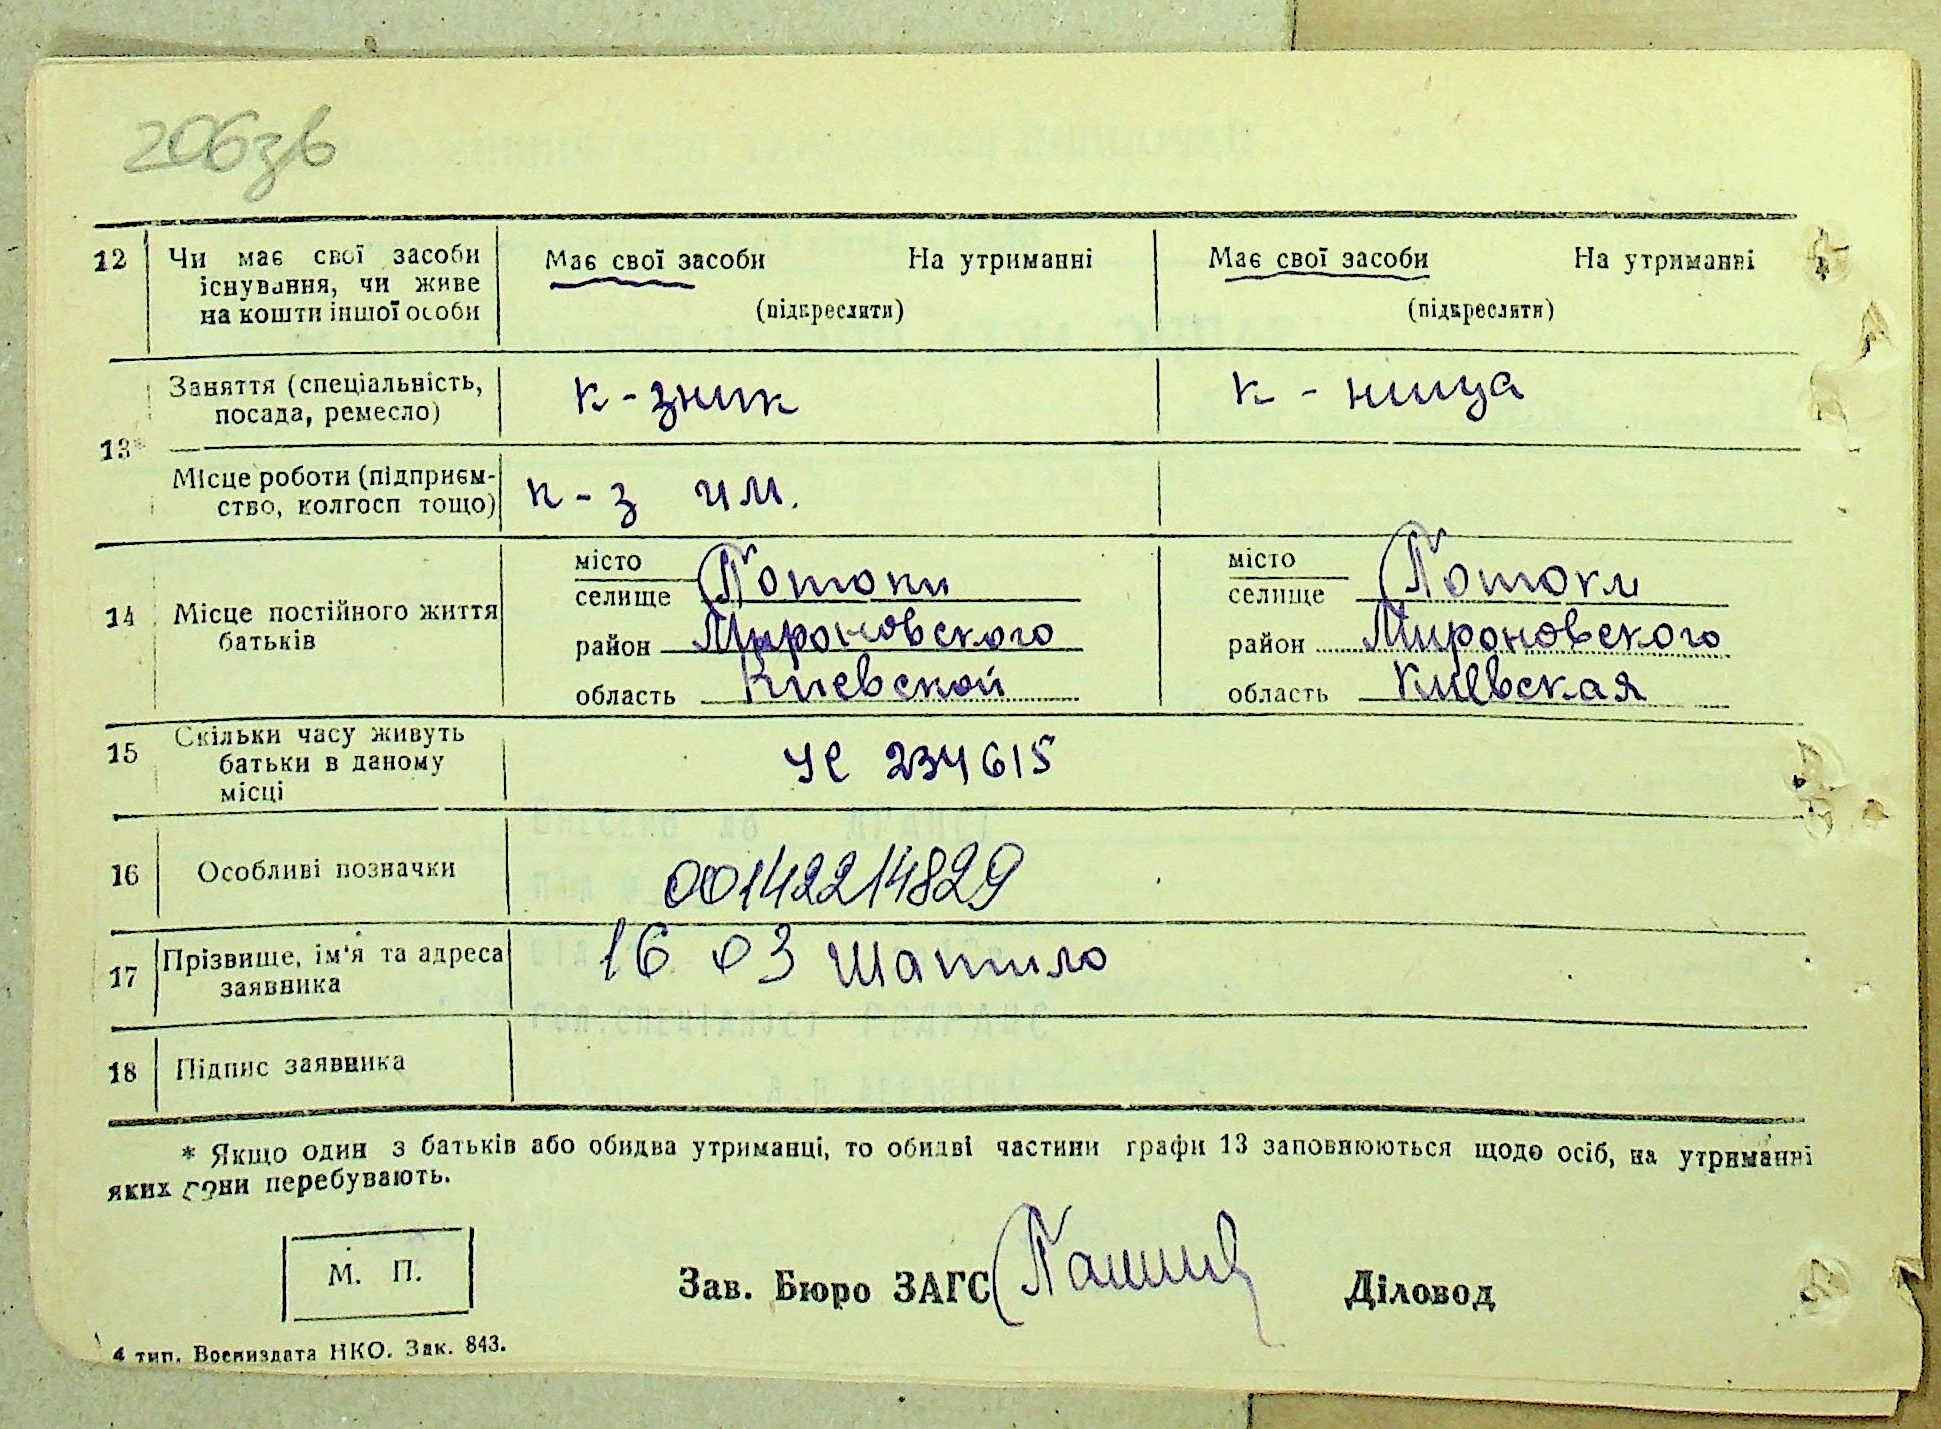 206зв
12 Чи має свої засоби існування, чи живе на кошти іншої особи
Має свої засоби На утриманні
(підкреслити)
Має свої засоби На утриманні
(підкреслити)
13*
Заняття (спеціальність,
посада, ремесло)
к-зник
к - ница
Місце роботи (підприєм-
ство, колгосп тощо)
к-з им.
14 Місце постійного життя
батьків
місто
селище Потоки
район Мироновского
область Киевской
місто
селище Потоки
район Мироновского
область Киевская
15 Скільки часу живуть
батьки в даному
місці
УС 234615
16 Особливі позначки
00142214829
17 Прізвище, ім'я та адреса
заявника
16 03 Шапило
18 Підпис заявника
* Якщо один з батьків або обидва утриманці, то обидві частини графи 13 заповнюються щодо осіб, на утриманні
яких вони перебувають.
М. П.
Зав. Бюро ЗАГС
Діловод
4 тип. Воениздата НКО. Зак. 843.